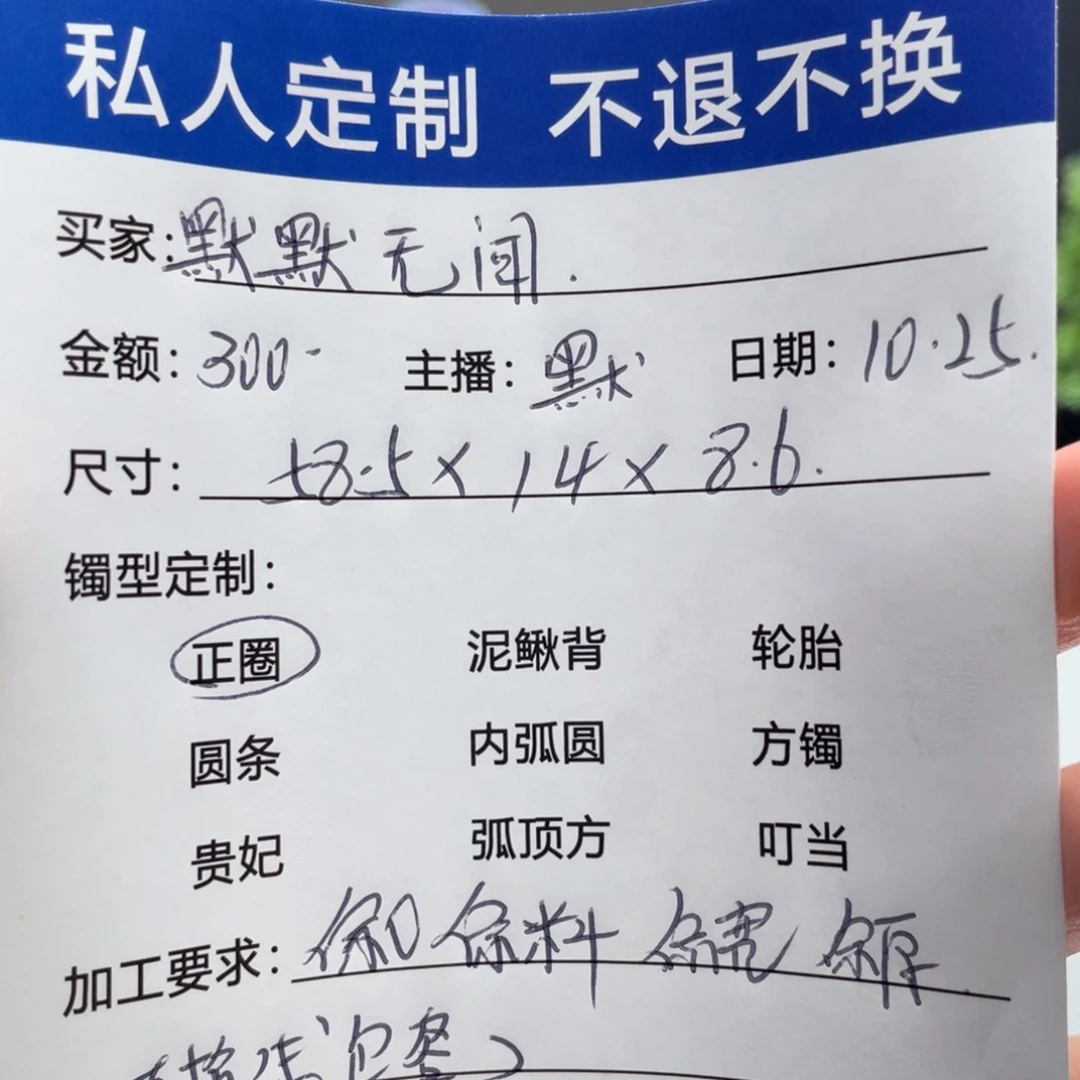 私人定制 不退不换
买家：默默无闻.
金额：300- 主播：默 日期：10.25.
尺寸：58.5×14×8.6.
镯型定制：
正圈 泥鳅背 轮胎
圆条 内弧圆 方镯
贵妃 弧顶方 叮当
加工要求：保口 保料 保宽 保厚